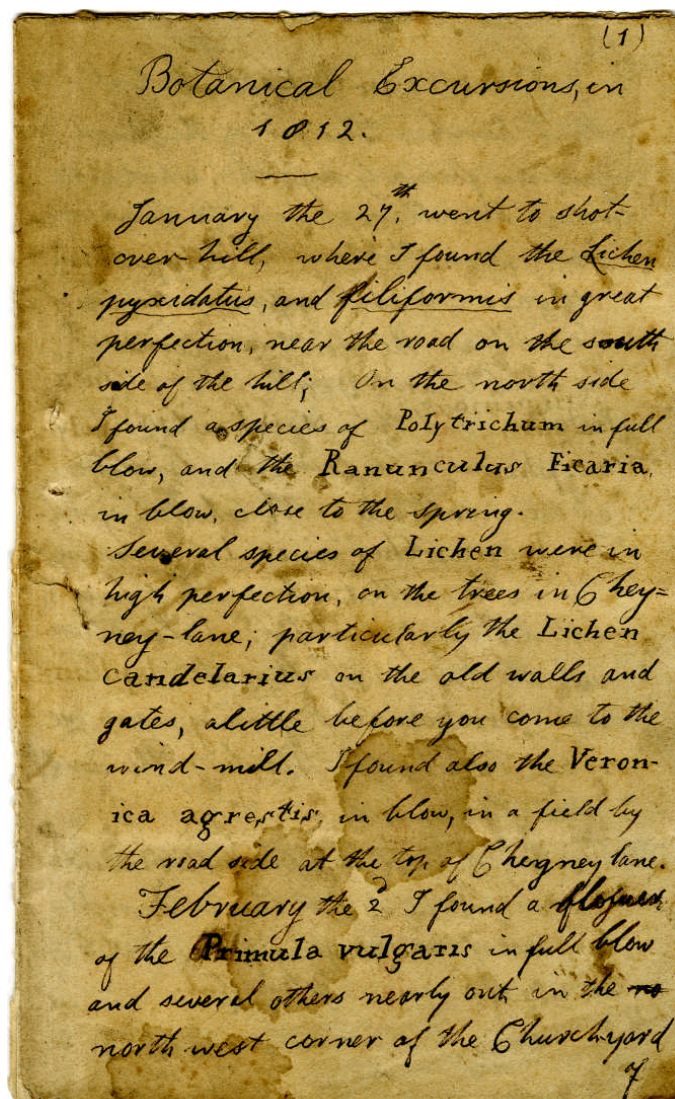 (1)
Botanical Excursions, in
1812.
January the 27th. went to shot=
over-hill, where I found the Lichen
pyxidatus, and filiformis in great
perfection, near the road on the south
side of the hill; On the north side
I found a species of Polytrichum in full
blow, and the Ranunculus Ficaria,
in blow, close to the spring.
Several species of Lichen were in
high perfection, on the trees in Chey=
ney-lane; particularly the Lichen
candelarius on the old walls and
gates, alittle before you come to the
wind-mill. I found also the Veron-
ica agrestis, in blow, in a field by
the road side at the top of Cheyney lane.
February the 2d I found a flower
of the Primula vulgaris in full blow
and several others nearly out, in the no
north west corner of the Church-yard
of